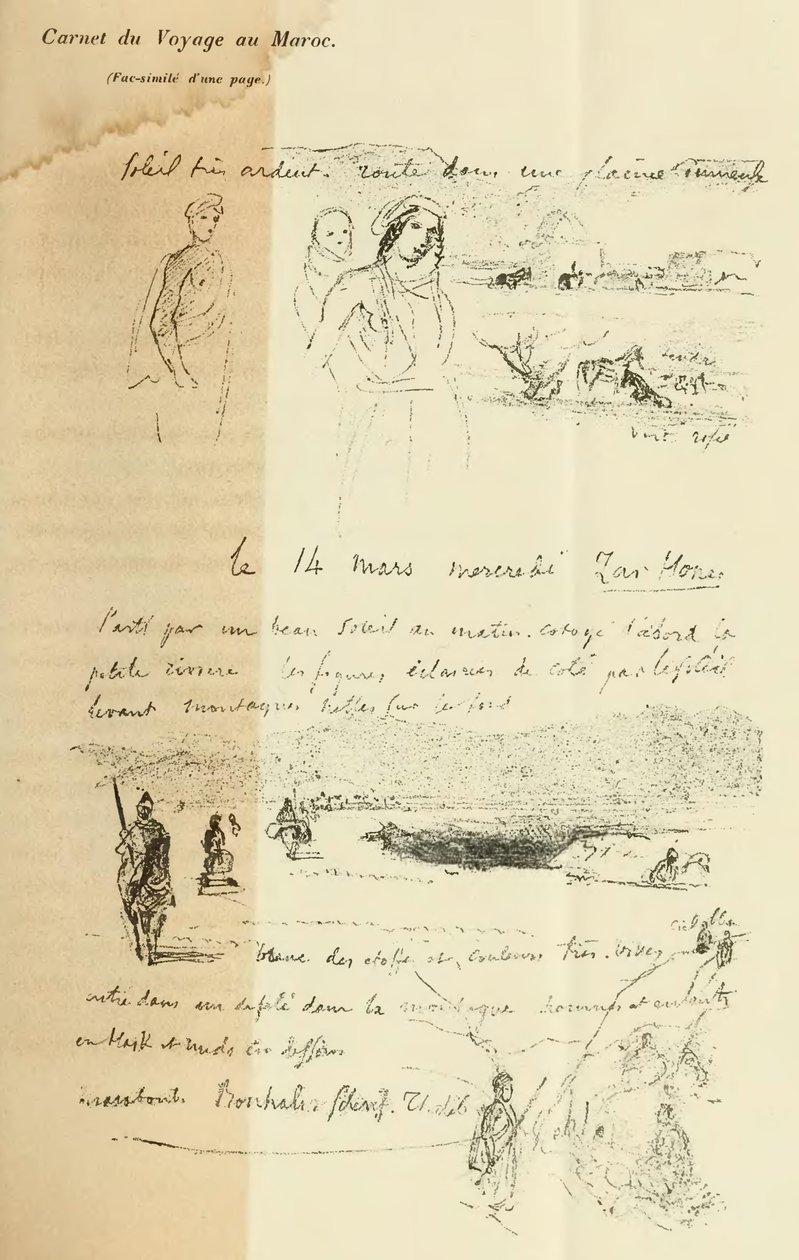 Carnet du Voyage au Maroc.
(Fac-similé d'une page.)
Soleil très ardent. route dans une plaine immense
vert
le 14 mars mercredi Zar Hone.
Parti par un beau soleil au matin. cotoyé d'abord la
petite rivière les figures éclairées de coté par le soleil
levant montagnes nettes sur le fond
blanc des etoffes et couleurs très vives
entré dans un défilé dans la montagne hommes et enfants
en haik et nuds en dessous
marabout.